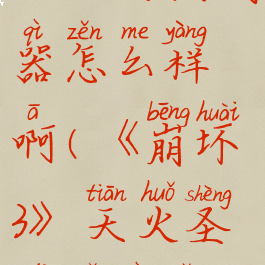 qì zěn me yàng
器怎么样
ā bēng huài
啊(《崩坏
tiān huǒ shèng
3》天火圣